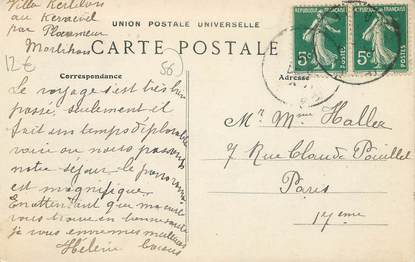 Villa Kerlilon
au Kernével
par Ploemeur
Morbihan
UNION POSTALE UNIVERSELLE
CARTE POSTALE
12€
56
Correspondance
Adresse
5c
POSTES
5c
POSTES
Le voyage s'est très bien
passé, seulement il
fait un temps déplorable
voici où nous passons
notre séjour le panorama
est magnifique.
En attendant que ma carte
vous trouve en bonne santé
je vous envoie mes meilleurs
Hélène
Mr Mme Haller
7 Rue Claude Pouillet
Paris
17eme